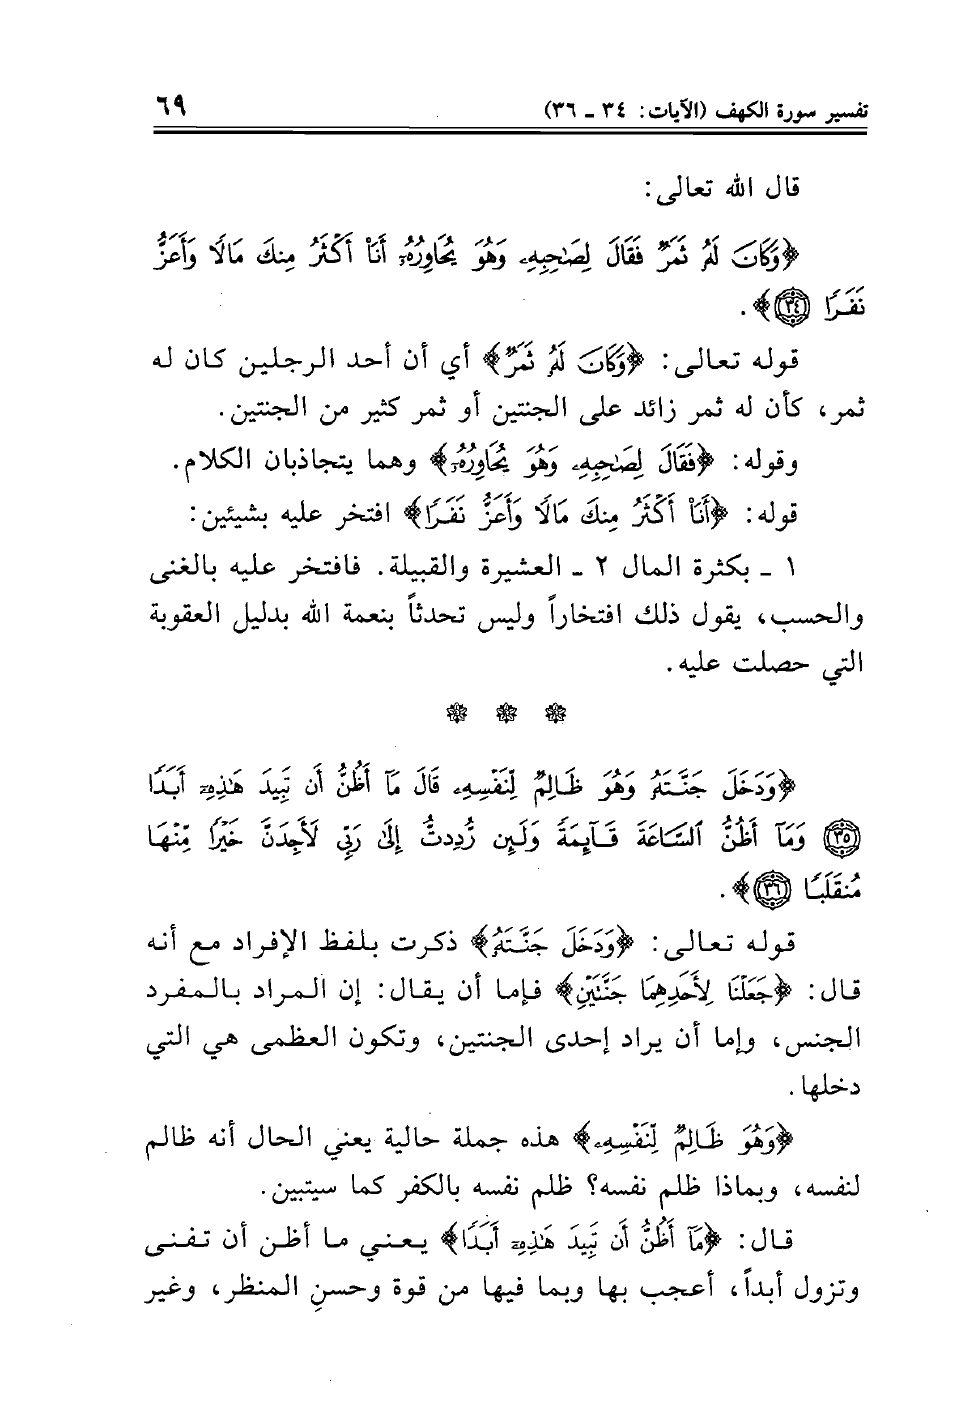 تفسير سورة الكهف (الآيات: ٣٤ ـ ٣٦) ٦٩
قال الله تعالى:
﴿وَكَانَ لَهُۥ ثَمَرٞ فَقَالَ لِصَٰحِبِهِۦ وَهُوَ يُحَاوِرُهُۥٓ أَنَا۠ أَكۡثَرُ مِنكَ مَالٗا وَأَعَزُّ
نَفَرٗا ٣٤﴾.
قوله تعالى: ﴿وَكَانَ لَهُۥ ثَمَرٞ﴾ أي أن أحد الرجلين كان له
ثمر، كأن له ثمر زائد على الجنتين أو ثمر كثير من الجنتين.
وقوله: ﴿فَقَالَ لِصَٰحِبِهِۦ وَهُوَ يُحَاوِرُهُۥٓ﴾ وهما يتجاذبان الكلام.
قوله: ﴿أَنَا۠ أَكۡثَرُ مِنكَ مَالٗا وَأَعَزُّ نَفَرٗا﴾ افتخر عليه بشيئين:
١ ـ بكثرة المال ٢ ـ العشيرة والقبيلة. فافتخر عليه بالغنى
والحسب، يقول ذلك افتخاراً وليس تحدثاً بنعمة الله بدليل العقوبة
التي حصلت عليه.
﴿وَدَخَلَ جَنَّتَهُۥ وَهُوَ ظَالِمٞ لِّنَفۡسِهِۦ قَالَ مَآ أَظُنُّ أَن تَبِيدَ هَٰذِهِۦٓ أَبَدٗا
٣٥ وَمَآ أَظُنُّ ٱلسَّاعَةَ قَآئِمَةٗ وَلَئِن رُّدِدتُّ إِلَىٰ رَبِّي لَأَجِدَنَّ خَيۡرٗا مِّنۡهَا
مُنقَلَبٗا ٣٦﴾.
قوله تعالى: ﴿وَدَخَلَ جَنَّتَهُۥ﴾ ذكرت بلفظ الإفراد مع أنه
قال: ﴿جَعَلۡنَا لِأَحَدِهِمَا جَنَّتَيۡنِ﴾ فإما أن يقال: إن المراد بالمفرد
الجنس، وإما أن يراد إحدى الجنتين، وتكون العظمى هي التي
دخلها.
﴿وَهُوَ ظَالِمٞ لِّنَفۡسِهِۦ﴾ هذه جملة حالية يعني الحال أنه ظالم
لنفسه، وبماذا ظلم نفسه؟ ظلم نفسه بالكفر كما سيتبين.
قال: ﴿مَآ أَظُنُّ أَن تَبِيدَ هَٰذِهِۦٓ أَبَدٗا﴾ يعني ما أظن أن تفنى
وتزول أبداً، أعجب بها وبما فيها من قوة وحسنِ المنظر، وغير